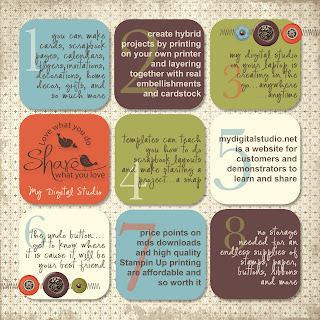 1
you can make
cards, scrapbook
pages, calendars,
flyers, invitations,
decorations, home
decor, gifts, and
so much more
2
create hybrid
projects by printing
on your own printer
and layering
together with real
embellishments
and cardstock
3
my digital studio
on your laptop is
creating on the
go... anywhere
anytime
Love what you do
Share
what you love
My Digital Studio
4
templates can teach
you how to do
scrapbook layouts
and make starting a
project... a snap
5
mydigitalstudio.net
is a website for
customers and
demonstrators to
learn and share
6
the undo button...
get to know where
it is cause it will be
your best friend
7
price points on
mds downloads
and high quality
Stampin Up printing
are affordable and
so worth it
8
no storage
needed for an
endless supplies of
stamps, paper,
buttons, ribbons
and more